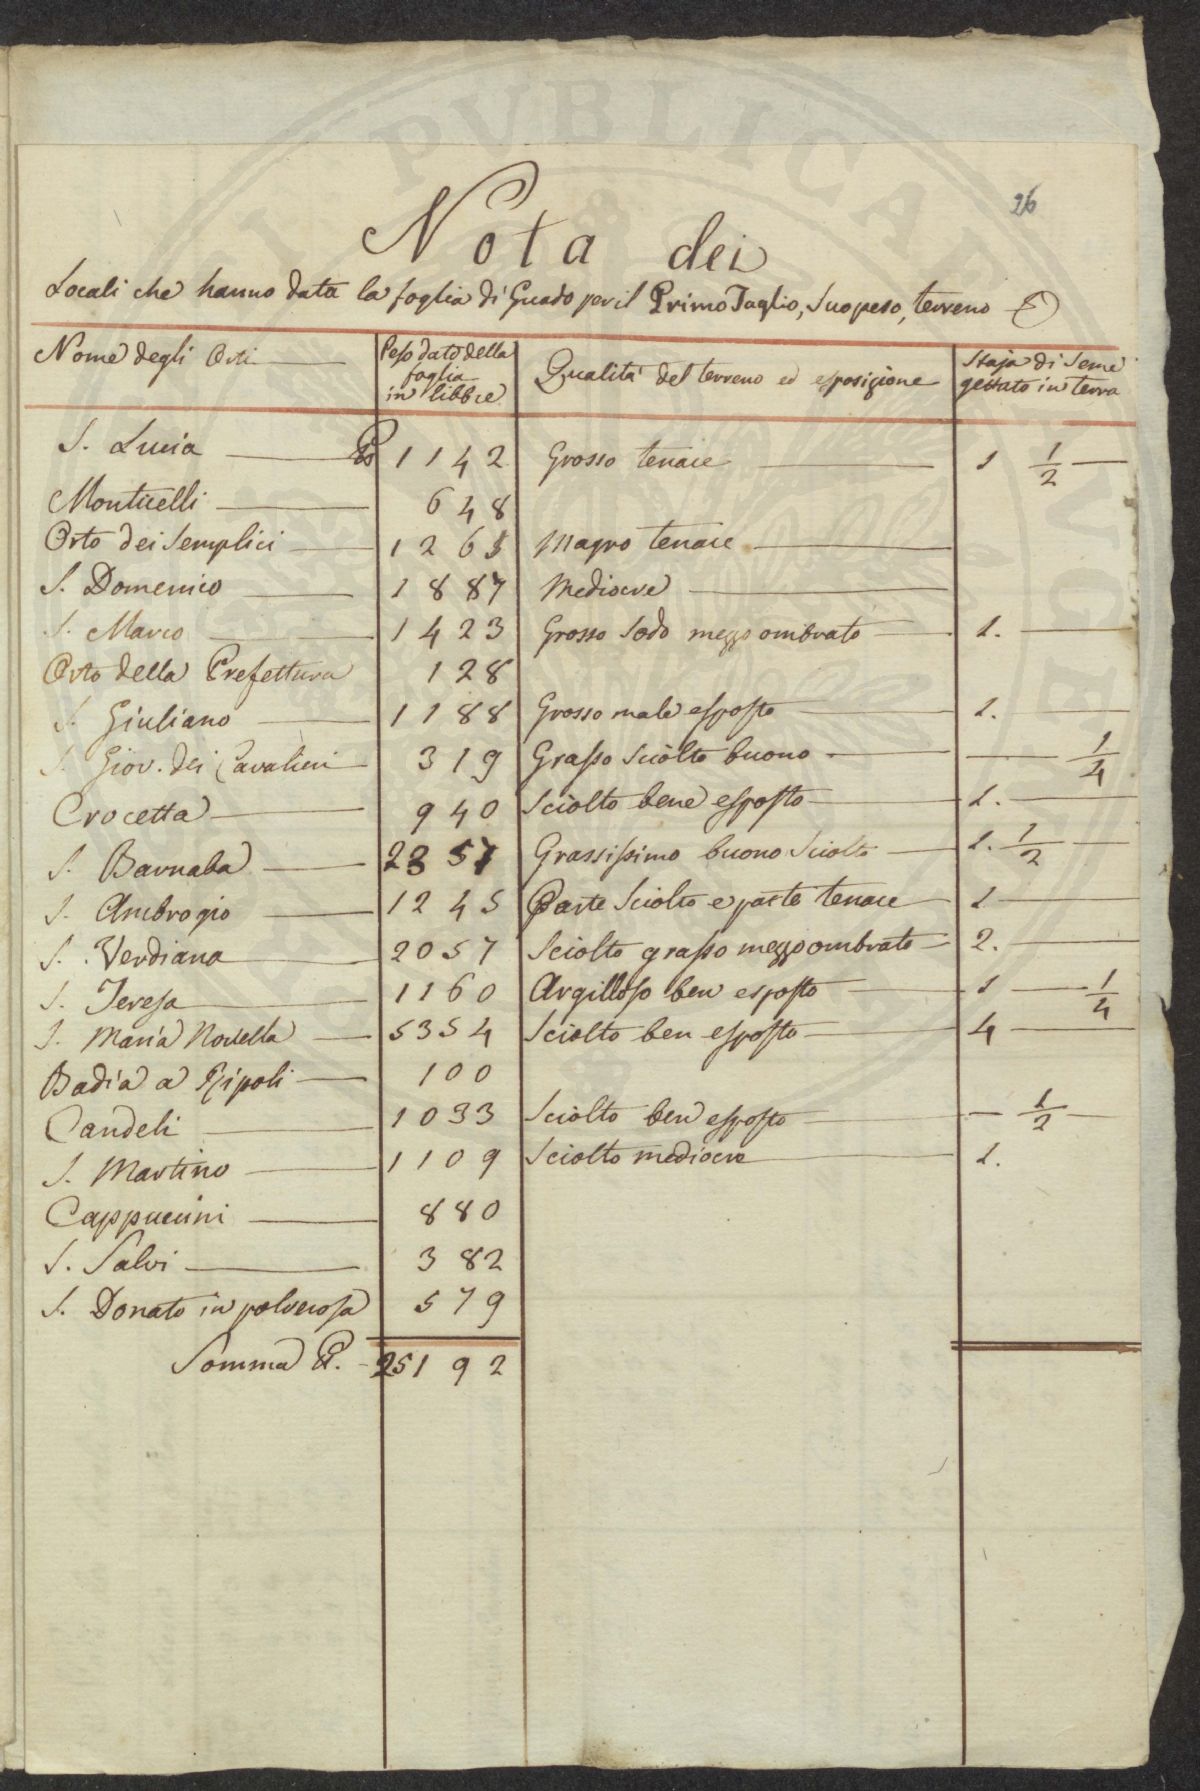 26
Nota dei
Locali che hanno data la foglia di Guado per il Primo Taglio, Suo peso, terreno
Nome degli Orti | Peso dato della foglia in libbre | Qualità del terreno ed esposizione | Staja di Seme gettato in terra
S. Lucia 1142 Grosso tenace 1 1/2
Monticelli 648
Orto dei Semplici 1263 Magro tenace
S. Domenico 1887 Mediocre
S. Marco 1423 Grosso Sodo mezzo ombrato 1.
Orto della Prefettura 128
S. Giuliano 1188 Grosso male esposto 1.
S. Giov. dei Cavalieri 319 Grasso Sciolto buono 1/4
Crocetta 940 Sciolto bene esposto 1.
S. Barnaba 2357 Grassissimo buono Sciolto 1. 1/2
S. Ambrogio 1245 Parte Sciolto e parte tenace 1
S. Verdiana 2057 Sciolto grasso mezzo ombrato 2.
S. Teresa 1160 Argilloso ben esposto 1 1/4
S. Maria Novella 5354 Sciolto ben esposto 4
Badia a Ripoli 100
Candeli 1033 Sciolto ben esposto 1/2
S. Martino 1109 Sciolto mediocre 1.
Cappuccini 880
S. Salvi 382
S. Donato in polverosa 579
Somma 25192
PVBLICAE